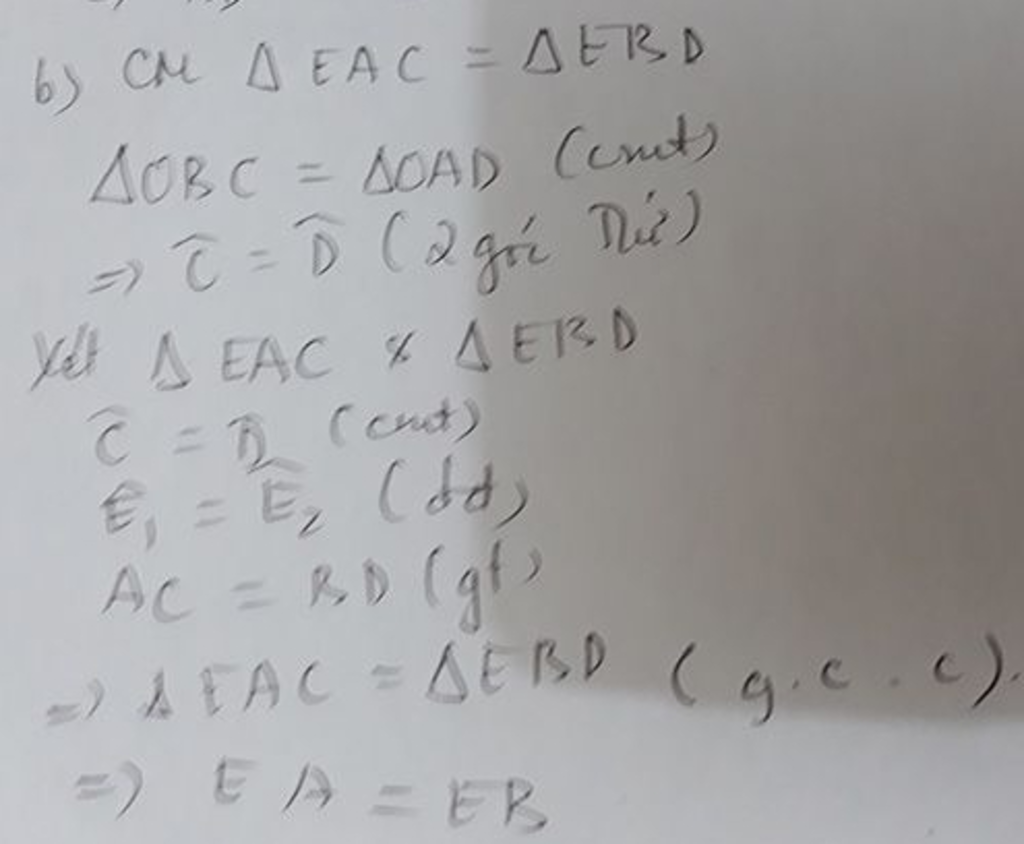 b) CM Δ EAC = Δ EBD
ΔOBC = ΔOAD (cmt)
=> Ĉ = D̂ (2 góc
Xét Δ EAC & Δ EBD
Ĉ = D̂ (cmt)
Ê₁ = Ê₂ (đđ)
AC = BD (gt)
=> Δ EAC = ΔEBD (g.c.c).
=> EA = EB